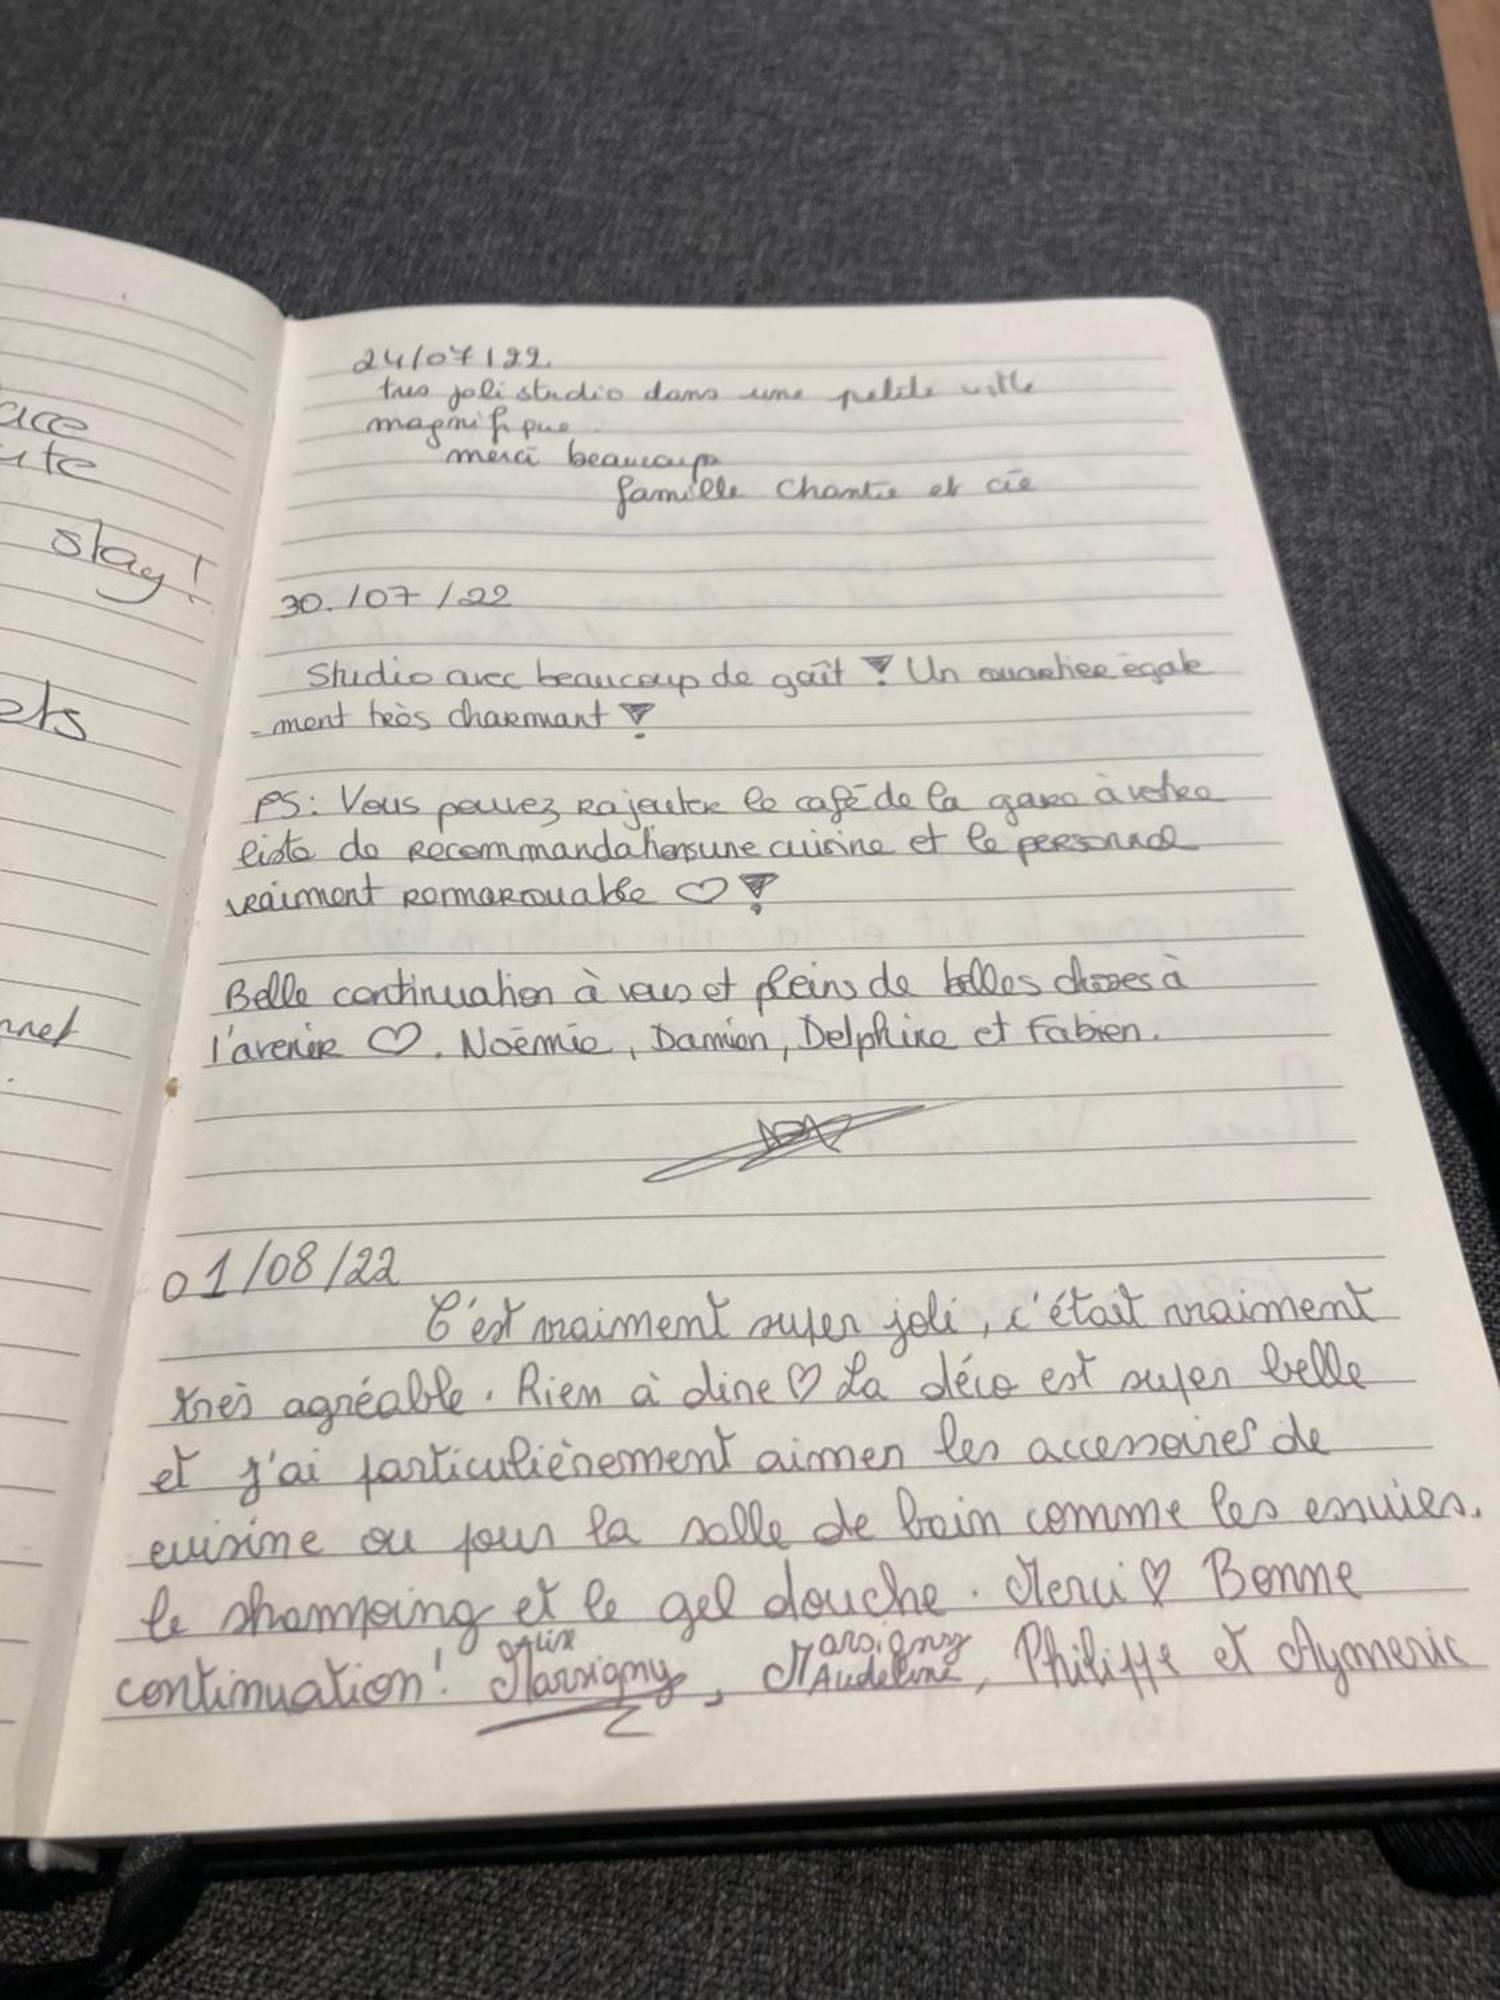 ace
ute
stay!
ets
nnet
24/07/22.
tres joli studio dans une petite ville
magnifique.
merci beaucoup
famille Chantie et cie
30./07/22
Studio avec beaucoup de goît ! Un quartier égale
-ment très charmant !
PS: Vous pouvez rajouter le café de la gare à votre
liste de recommandations une cuisine et le personnel
vraiment remarquable ♡ !
Belle continuation à vous et pleins de belles choses à
l'avenir ♡. Noémie, Damien, Delphine et Fabien.
01/08/22
C'est vraiment super joli, c'était vraiment
très agréable. Rien à dire ♡ La déco est super belle
et j'ai particulièrement aimer les accessoires de
cuisine ou pour la salle de bain comme les essuies,
le shampoing et le gel douche. Merci ♡ Bonne
continuation! Alix Marsigny, Marsigny Audeline, Philippe et Aymeric